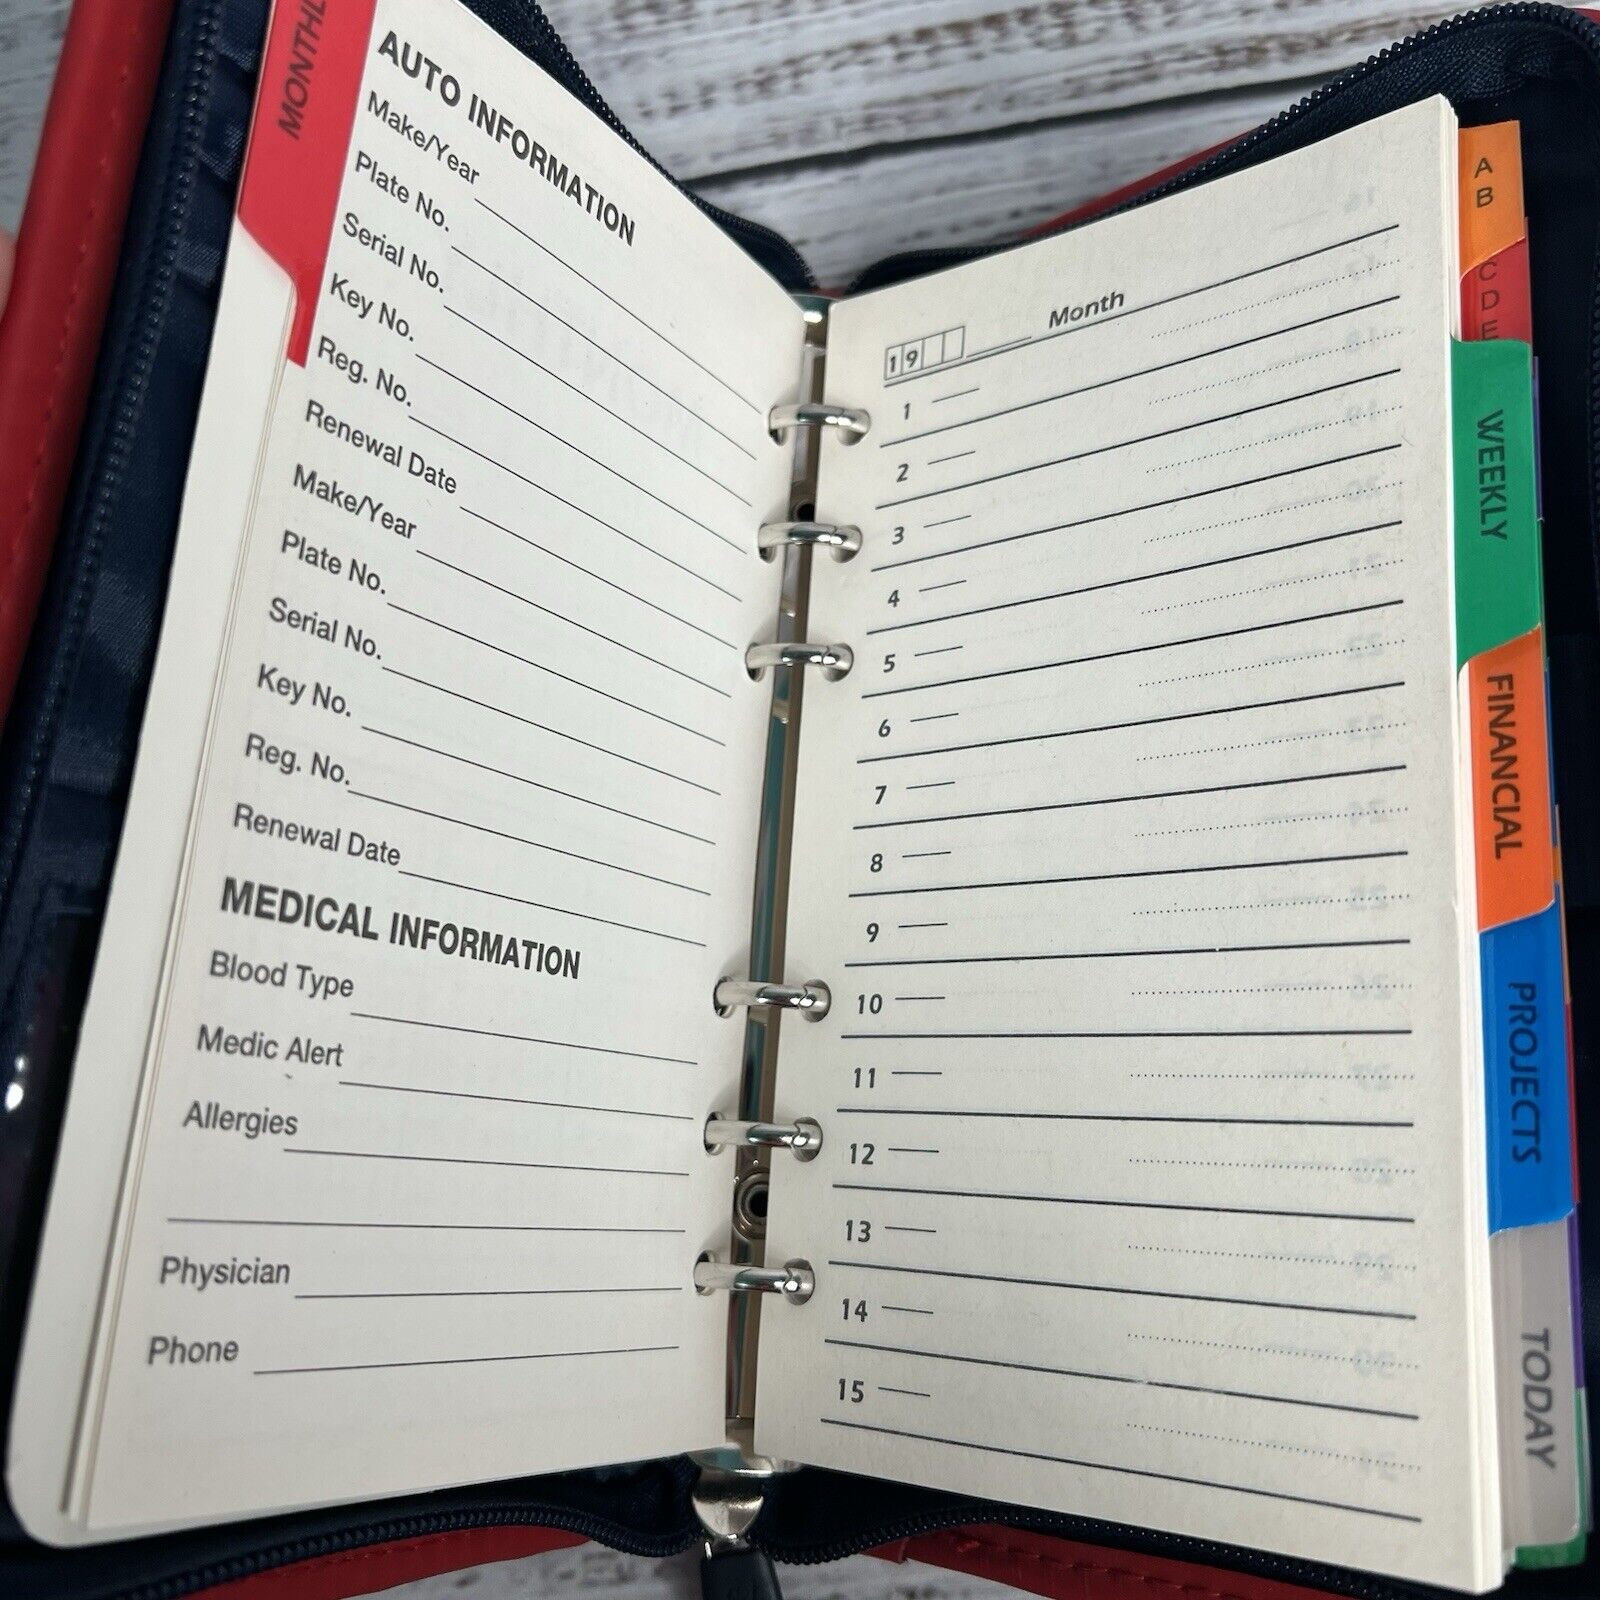 MONTHL
AUTO INFORMATION
Make/Year
Plate No.
Serial No.
Key No.
Reg. No.
Renewal Date
Make/Year
Plate No.
Serial No.
Key No.
Reg. No.
Renewal Date
MEDICAL INFORMATION
Blood Type
Medic Alert
Allergies
Physician
Phone
19 Month
1
2
3
4
5
6
7
8
9
10
11
12
13
14
15
A
B
C
D
E
WEEKLY
FINANCIAL
PROJECTS
TODAY